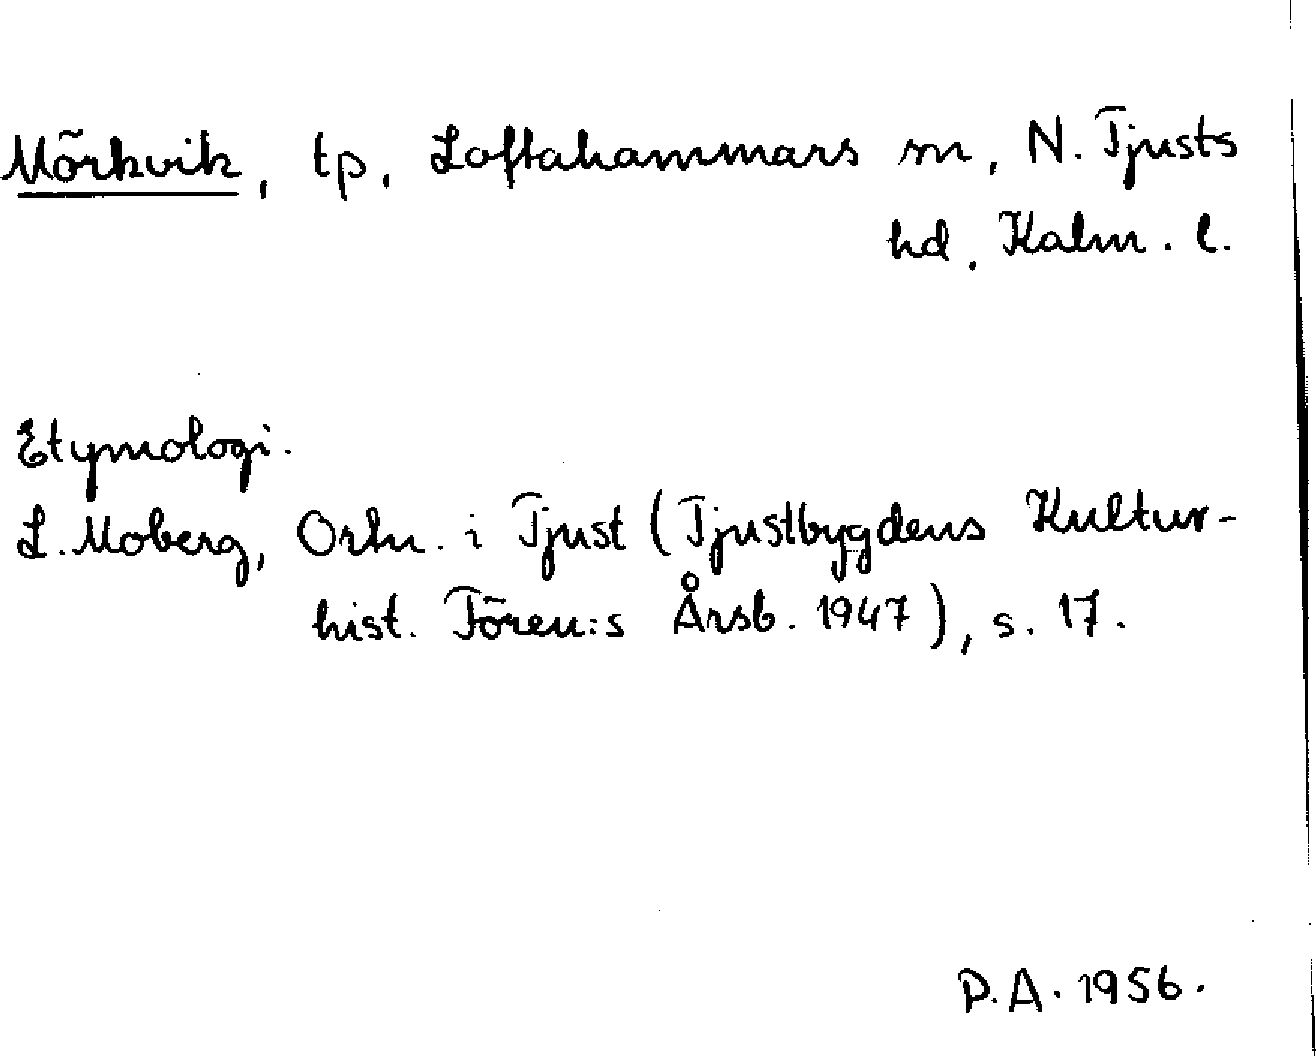 Mörkvik, tp, Loftahammars sn, N. Tjusts
hd, Kalm. l.
Etymologi.
L. Moberg, Ortn. i Tjust (Tjustbygdens Kultur-
hist. Fören:s Årsb. 1947), s. 17.
P.A. 1956.